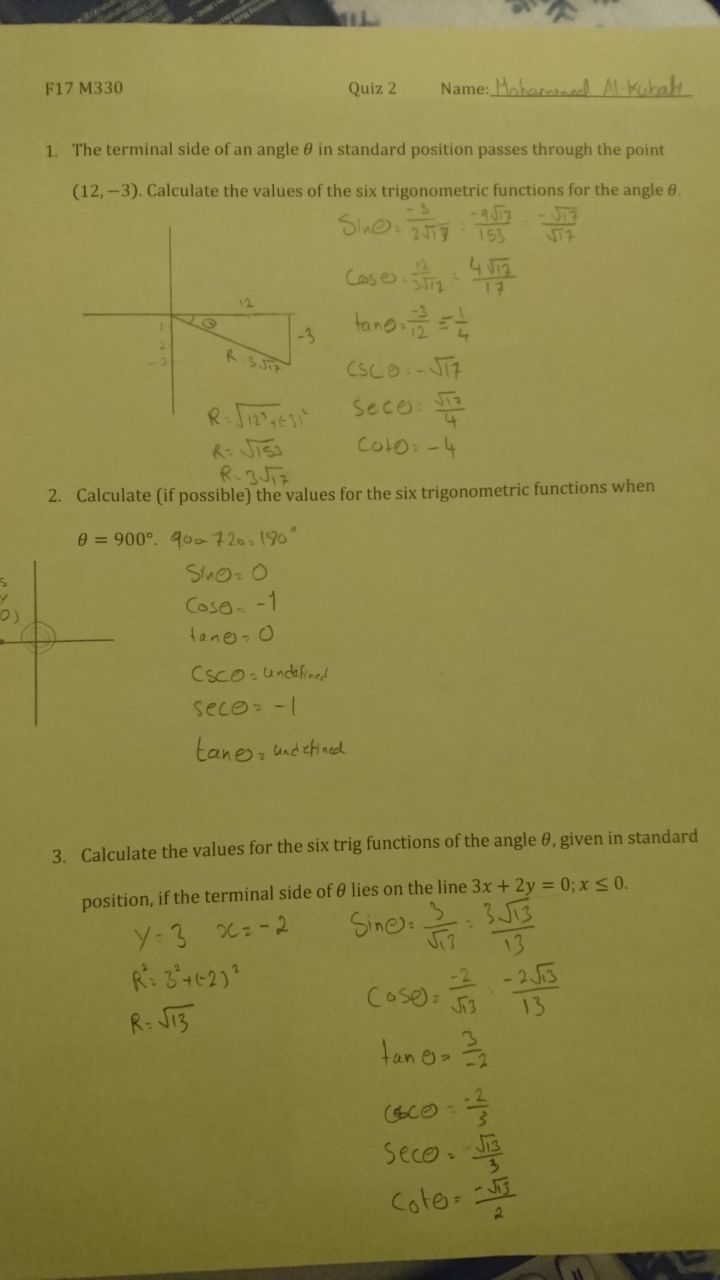 F17 M330 Quiz 2 Name: Mohammed Al-Kubati
1. The terminal side of an angle θ in standard position passes through the point
(12, −3). Calculate the values of the six trigonometric functions for the angle θ.
Sinθ = -3/3√17 = -9√17/153 = -√17/√17
Cosθ = 12/3√17 = 4√17/17
12
θ
1
2
-3
-3
R = 3√17
tanθ = -3/12 = -1/4
CSCθ = -√17
R = √12²+(-3)²
Secθ = √17/4
R = √153
Cotθ = -4
R = 3√17
2. Calculate (if possible) the values for the six trigonometric functions when
θ = 900°. 900-720=180°
Sinθ = 0
Cosθ = -1
tanθ = 0
CSCθ = undefined
secθ = -1
tanθ = undefined
3. Calculate the values for the six trig functions of the angle θ, given in standard
position, if the terminal side of θ lies on the line 3x + 2y = 0; x ≤ 0.
y = 3 x = -2
Sinθ = 3/√13 = 3√13/13
R² = 3²+(-2)²
Cosθ = -2/√13 = -2√13/13
R = √13
tanθ = 3/-2
cscθ = -2/3
Secθ = √13/3
Cotθ = -√13/2